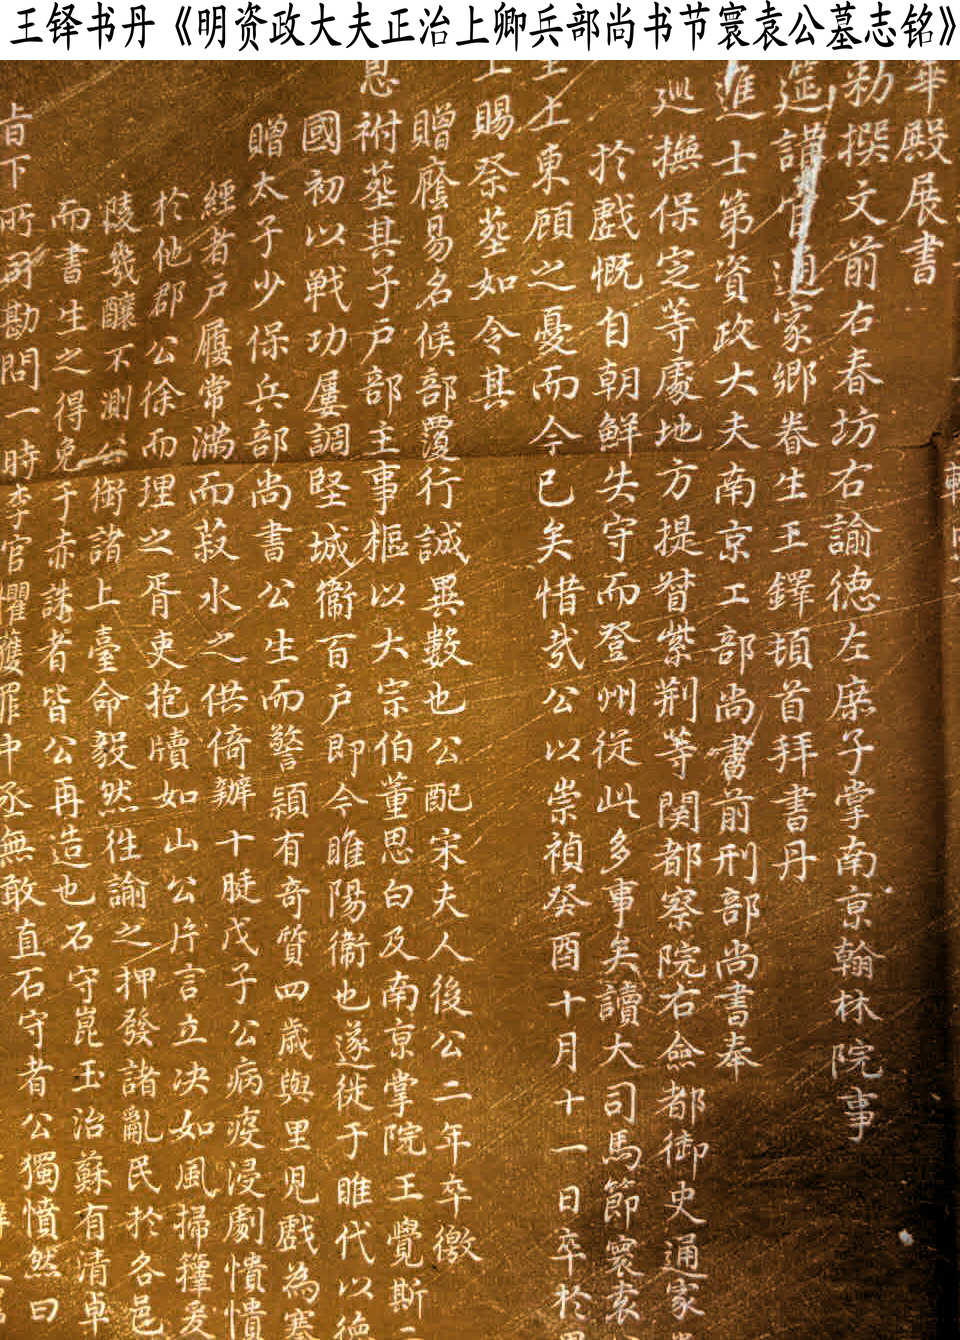 王铎书丹《明资政大夫正治上卿兵部尚书节寰袁公墓志铭》
華殿展書
勑撰文前右春坊右諭德左庶子掌南京翰林院事
筵講官通家鄉眷生王鐸頓首拜書丹
進士第資政大夫南京工部尚書前刑部尚書奉
巡撫保定等處地方提督紫荆等関都察院右僉都御史通家
於戲慨自朝鮮失守而登州從此多事矣讀大司馬節寰袁
主上東顧之憂而今已矣惜哉公以崇禎癸酉十月十一日卒於
上賜祭葬如令其
贈廕易名候部覆行誠異數也公配宋夫人後公二年卒徼
息祔葬其子户部主事樞以大宗伯董思白及南京掌院王覺斯二
國初以戰功屢調堅城衞百户即今睢陽衞也遂徙于睢代以德
贈太子少保兵部尚書公生而警頴有奇質四歲與里児戲為塞
經者户屨常滿而菽水之供倚辦十脡戊子公病疫浸劇憒憒
於他郡公徐而理之胥吏抱牘如山公片言立决如風掃籜爰
陵幾釀不測公銜諸上臺命毅然徃諭之押發諸亂民於各邑
而書生之得免于赤誅者皆公再造也石守崑玉治蘇有清卓
㫖下所司勘問一時李官懼獲罪中丞無敢直石守者公獨憤然曰